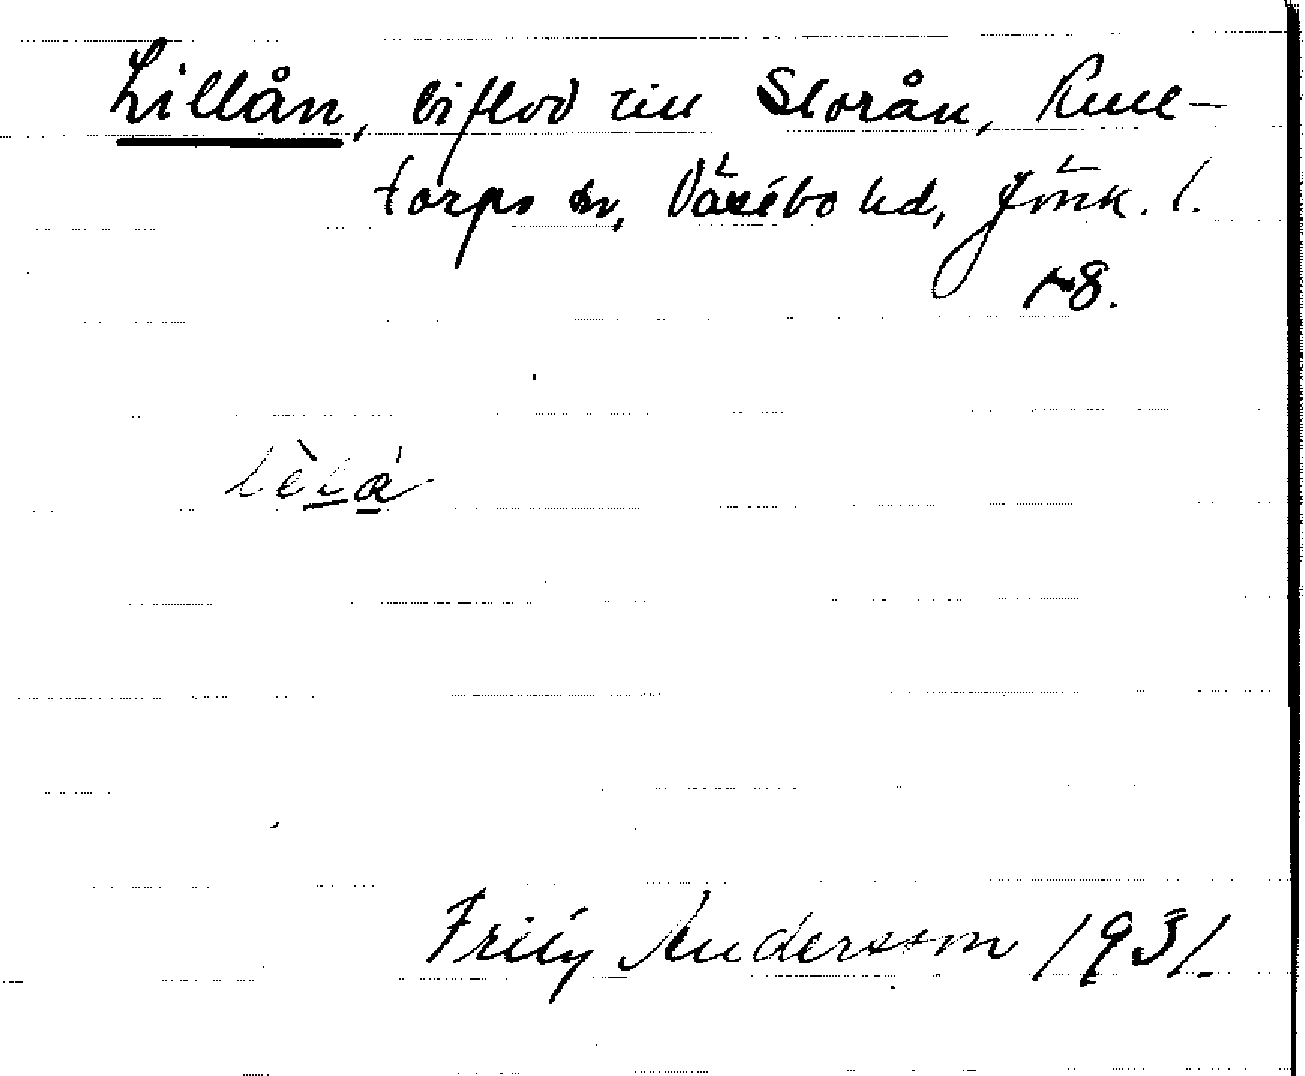 Lillån, biflod till Storån, Kull-
torps sn, Västbo hd, Jönk. l.
Fritjy Andersson 1931.